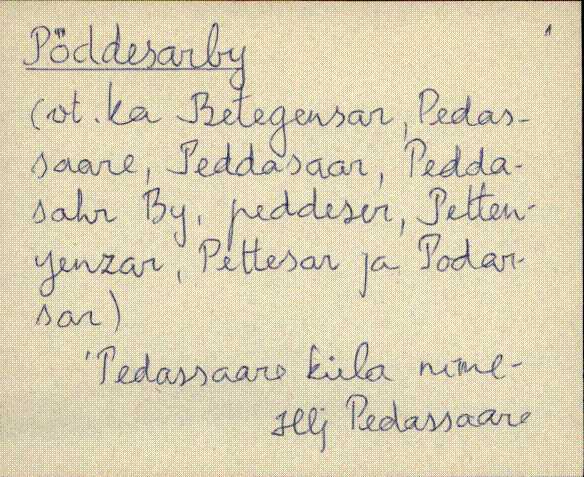 Pöddesarby
(vt. ka Betegensar, Pedas-
saare, Peddasaar, Pedda-
sahr By, peddeser, Petten-
yenzar, Pettesar ja Podar-
sar)
'Pedassaare küla nime-
Hlj Pedassaare